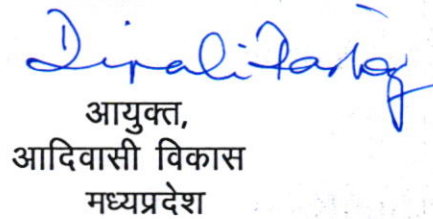 Dipali Rastogi
आयुक्त,
आदिवासी विकास
मध्यप्रदेश